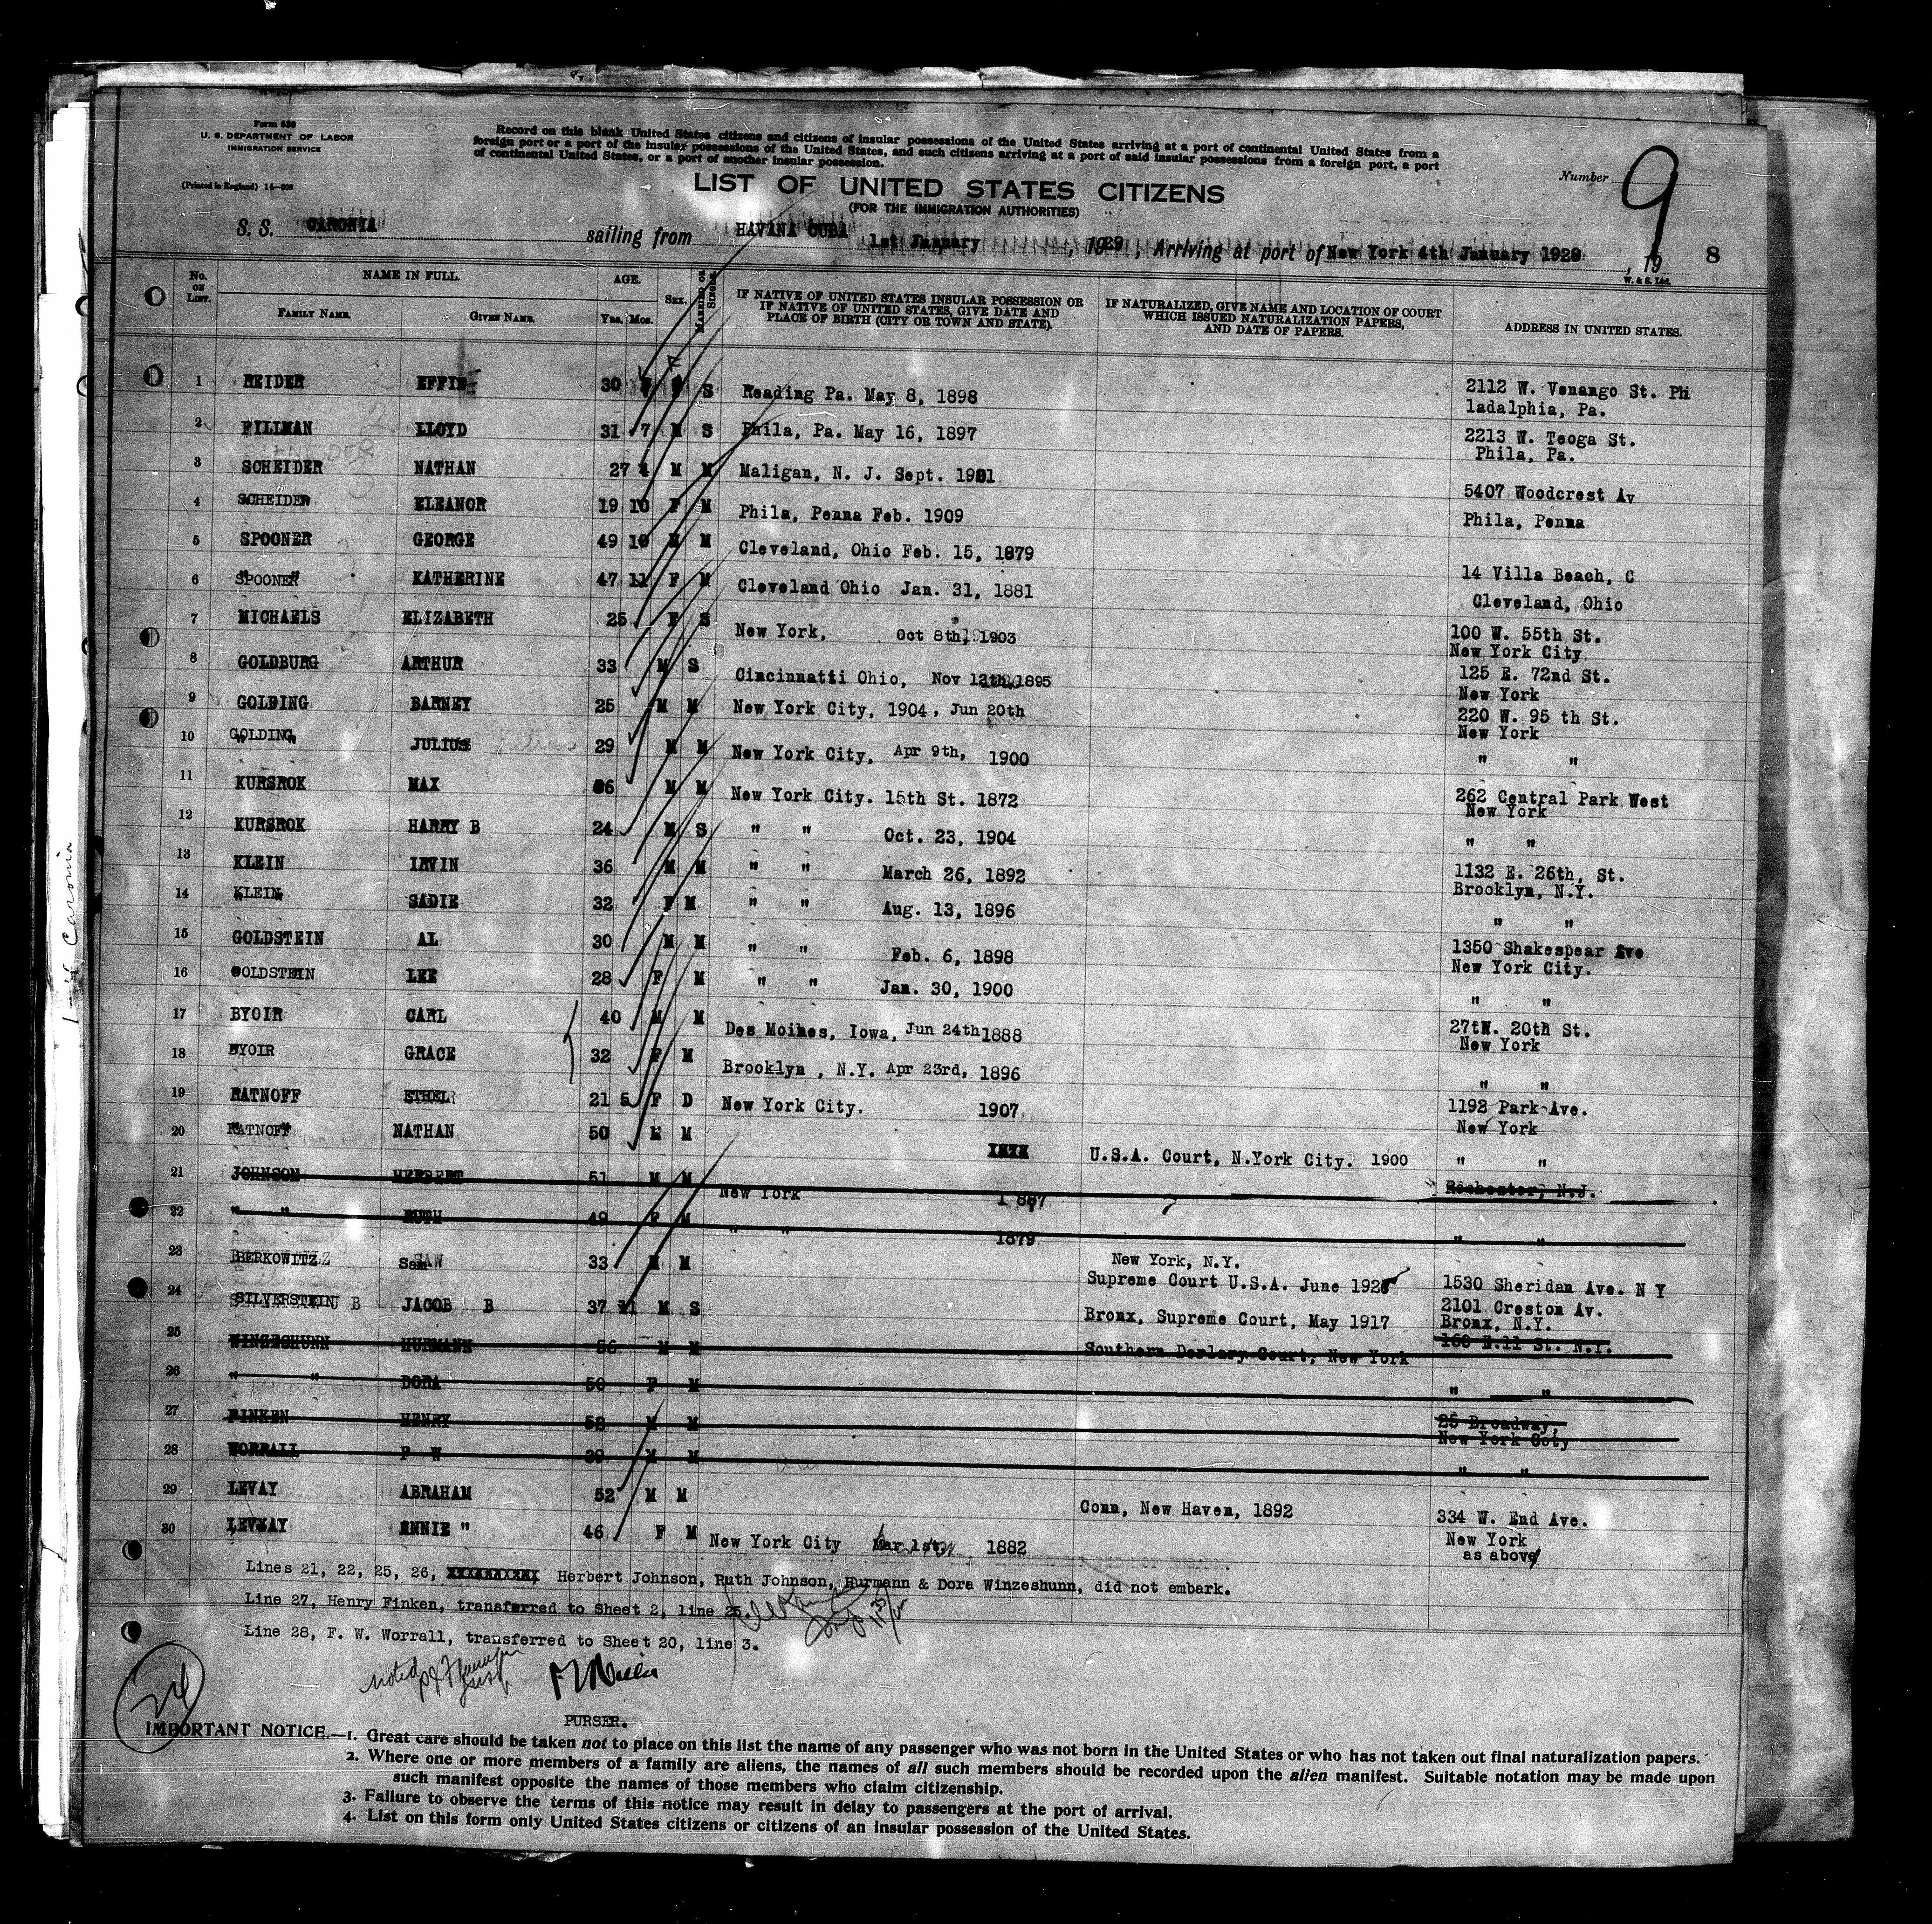 Form 630
U. S. DEPARTMENT OF LABOR
IMMIGRATION SERVICE
(Printed in England) 14—808
Record on this blank United States citizens and citizens of insular possessions of the United States arriving at a port of continental United States from a
foreign port or a port of the insular possessions of the United States, and such citizens arriving at a port of said insular possessions from a foreign port, a port
of continental United States, or a port of another insular possession.
LIST OF UNITED STATES CITIZENS
(FOR THE IMMIGRATION AUTHORITIES)
Number 9
S. S. CARONIA sailing from HAVANA CUBA 1st January, 1929, Arriving at port of New York 4th January 1929, 19 8
W. & S. Ltd.
No. ON LIST. NAME IN FULL. FAMILY NAME. GIVEN NAME. AGE. Yrs. Mos. SEX. MARRIED OR SINGLE. IF NATIVE OF UNITED STATES INSULAR POSSESSION OR IF NATIVE OF UNITED STATES, GIVE DATE AND PLACE OF BIRTH (CITY OR TOWN AND STATE). IF NATURALIZED, GIVE NAME AND LOCATION OF COURT WHICH ISSUED NATURALIZATION PAPERS, AND DATE OF PAPERS. ADDRESS IN UNITED STATES.
1 REIDER EFFIE 30 S Reading Pa. May 8, 1898 2112 W. Venango St. Phi
ladalphia, Pa.
2 FILLMAN LLOYD 31 7 M S Phila, Pa. May 16, 1897 2213 W. Teoga St.
Phila, Pa.
3 SCHEIDER NATHAN 27 4 M M Maligan, N. J. Sept. 1901
5407 Woodcrest Av
4 SCHEIDER ELEANOR 19 10 F M Phila, Penna Feb. 1909 Phila, Penna
5 SPOONER GEORGE 49 10 M M Cleveland, Ohio Feb. 15, 1879
14 Villa Beach, C
6 SPOONER KATHERINE 47 11 F M Cleveland Ohio Jan. 31, 1881 Cleveland, Ohio
7 MICHAELS ELIZABETH 25 F S New York, Oct 8th, 1903 100 W. 55th St.
New York City
8 GOLDBURG ARTHUR 33 M S Cincinnatti Ohio, Nov 12th, 1895 125 E. 72nd St.
New York
9 GOLDING BARNEY 25 M M New York City, 1904, Jun 20th 220 W. 95 th St.
New York
10 GOLDING JULIUS 29 M M New York City, Apr 9th, 1900 " "
11 KURSROK MAX 56 M M New York City. 15th St. 1872 262 Central Park West
New York
12 KURSROK HARRY B 24 M S " " Oct. 23, 1904 " "
13 KLEIN IRVIN 36 M M " " March 26, 1892 1132 E. 26th, St.
Brooklyn, N.Y.
14 KLEIN SADIE 32 F M " " Aug. 13, 1896 " "
15 GOLDSTEIN AL 30 M M " " Feb. 6, 1898 1350 Shakespear Ave
New York City.
16 GOLDSTEIN LEE 28 F M " " Jan. 30, 1900 " "
17 BYOIR CARL 40 M M Des Moines, Iowa, Jun 24th 1888 27tW. 20th St.
New York
18 BYOIR GRACE 32 F M Brooklyn, N.Y. Apr 23rd, 1896 " "
19 RATNOFF ETHEL 21 5 F D New York City. 1907 1192 Park Ave.
New York
20 RATNOFF NATHAN 50 M M XXXX U.S.A. Court, N.York City. 1900 " "
21 JOHNSON HERBERT 51 M M New York 1867 Rochester, N.J.
22 " " RUTH 49 F M " " 1879 " "
23 BERKOWITZ Sam 33 M M New York, N.Y.
Supreme Court U.S.A. June 1925 1530 Sheridan Ave. N Y
24 SILVERSTEIN B JACOB B 37 11 M S Bronx, Supreme Court, May 1917 2101 Creston Av.
Bronx, N.Y.
25 WINZESHUNN HURMANN 56 M M Southern Derlary Court, New York 160 E.11 St. N.Y.
26 " " DORA 50 F M " "
27 FINKEN HENRY 52 M M 25 Broadway
New York Coty
28 WORRALL F W 39 M M " "
29 LEVAY ABRAHAM 52 M M Conn, New Haven, 1892 334 W. End Ave.
New York
30 LEVAY ANNIE " 46 F M New York City Mar 1st, 1882 as above
Lines 21, 22, 25, 26, XXXXXXXXX Herbert Johnson, Ruth Johnson, Hurmann & Dora Winzeshunn, did not embark.
Line 27, Henry Finken, transferred to Sheet 2, line 25.
Line 28, F. W. Worrall, transferred to Sheet 20, line 3.
noted
PURSER.
24
IMPORTANT NOTICE.—1. Great care should be taken not to place on this list the name of any passenger who was not born in the United States or who has not taken out final naturalization papers.
2. Where one or more members of a family are aliens, the names of all such members should be recorded upon the alien manifest. Suitable notation may be made upon
such manifest opposite the names of those members who claim citizenship.
3. Failure to observe the terms of this notice may result in delay to passengers at the port of arrival.
4. List on this form only United States citizens or citizens of an insular possession of the United States.
1-4 Caronia